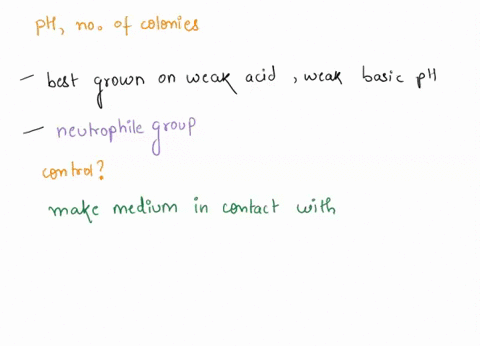 pH, no. of colonies
- best grown on weak acid, weak basic pH
- neutrophile group
control?
make medium in contact with